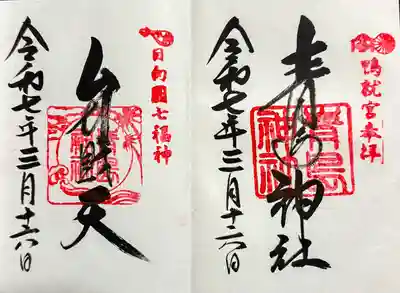 鴨就宮奉拝
青島神社
青島神社
令和七年三月十六日
日向國七福神
弁財天
令和七年三月十六日